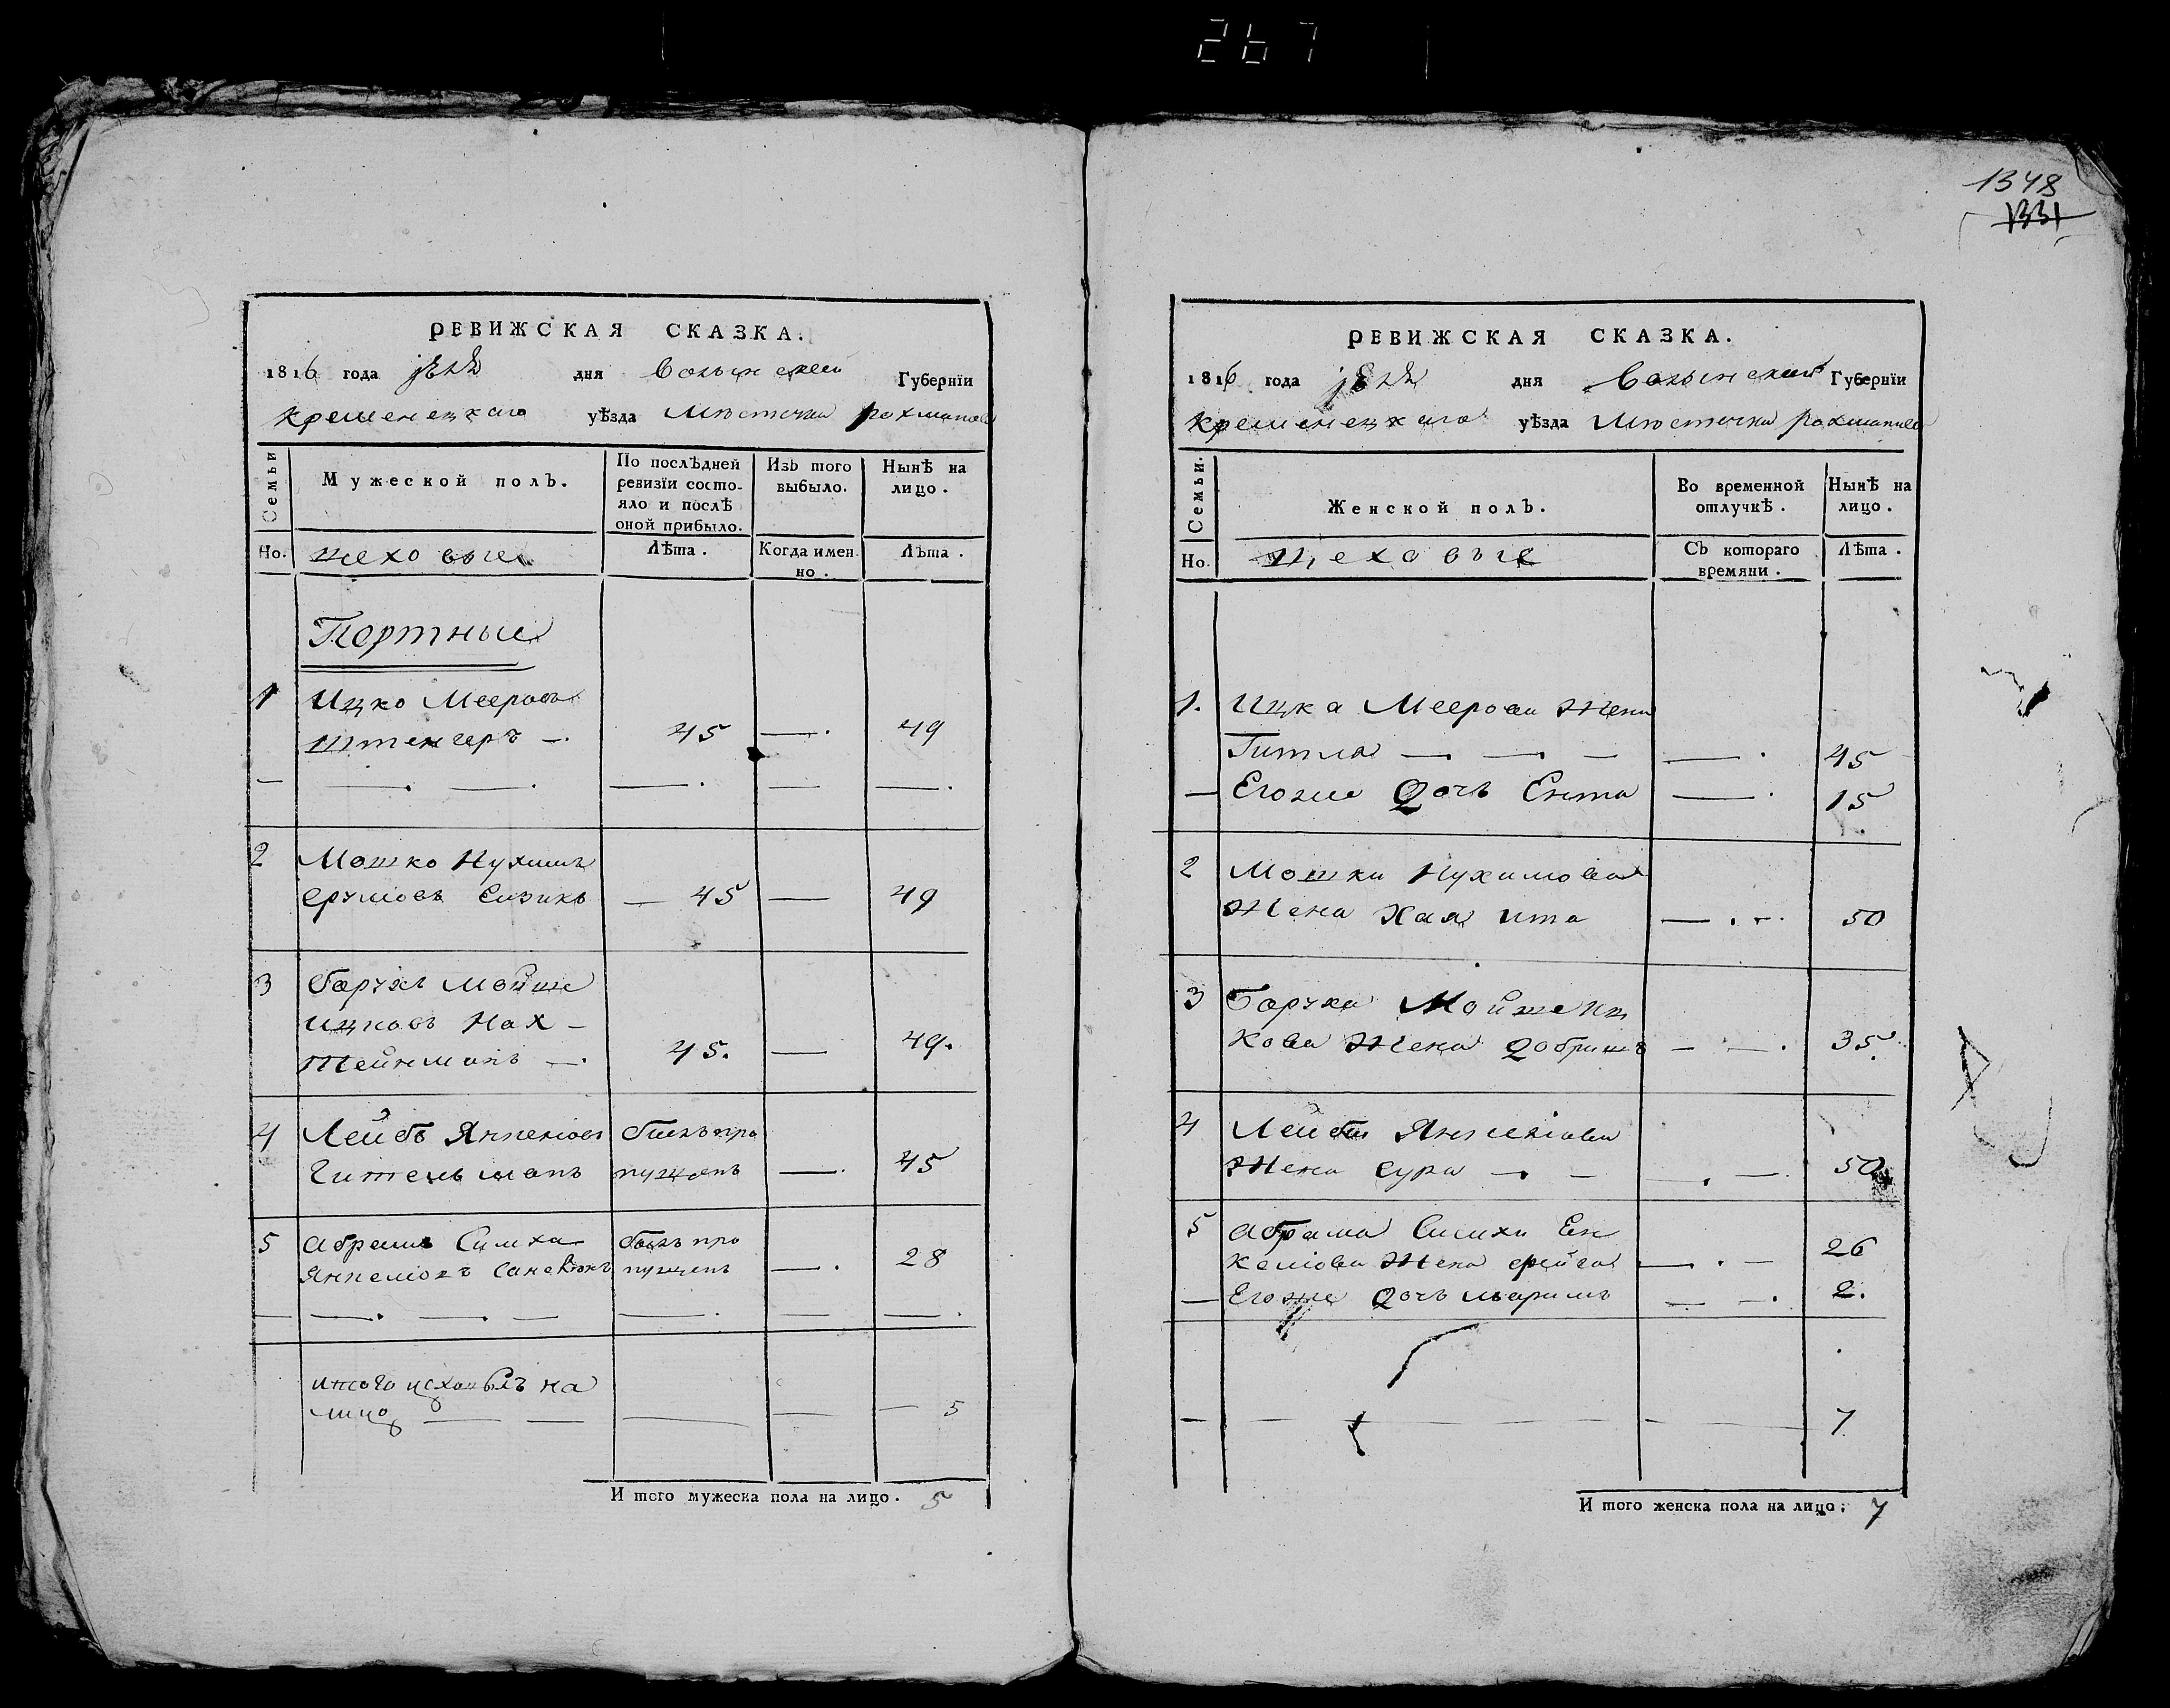 267
1348
1331
РЕВИЖСКАЯ СКАЗКА.
1816 года дня Волынской Губернїи
Кременецкаго уѣзда Мѣстечка Рохманова
Семьи
Мужеской полъ.
По послѣдней ревизїи состо-
яло и послѣ оной прибыло.
Изъ того выбыло.
Нынѣ на лицо.
Но.
цеховые
Лѣта.
Когда имен-
но.
Лѣта.
Портные
1 Ицко Мееровъ
Штенгеръ —. 45 —. 49
— —. —. —. — —.
2 Мошко Нухимъ
Срулiовъ — 45 — 49
3 Борухъ Мойше
Ицковъ Нах-
тейнманъ —. 45. — 49.
4 Лейбъ Янкелiовъ былъ про
Гительманъ пущенъ —. 45
5 Абрамъ Симха былъ про
Янкелiовъ пущенъ —. 28
— —. —. — —. — —.
итого цеховыхъ на
лицо — — — — — 5
И того мужеска пола на лицо. 5
РЕВИЖСКАЯ СКАЗКА.
1816 года дня Волынской Губернїи
Кременецкаго уѣзда Мѣстечка Рохманова
Семьи.
Женской полъ.
Во временной отлучкѣ.
Нынѣ на лицо.
Но.
цеховые
Съ котораго времяни.
Лѣта.
1. Ицка Меерова Жена
Гитля —. —. — —. 45
— Егоже Дочь Ента —. 15
2 Мошки Нухимова
Жена Хая Ита —. 50
3 Боруха Мойше Иц
кова Жена Добришъ — —. 35.
4 Лейбы Янкелiова
Жена Сура —. — —. — 50
5 Абрама Симхи Ен
келiова Жена Фейга —. — 26
— Егоже Дочь Маримъ — —. 2.
— — — — — — 7
И того женска пола на лицо: 7